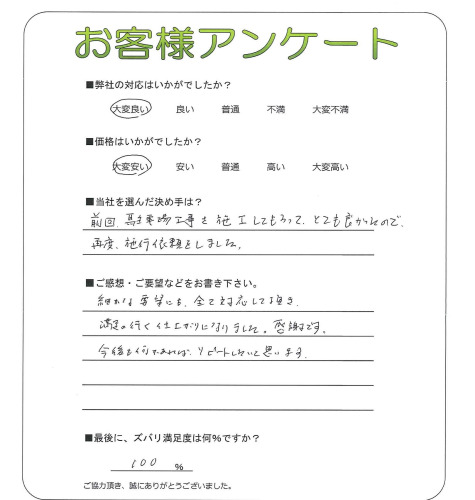 お客様アンケート
■弊社の対応はいかがでしたか？
大変良い 良い 普通 不満 大変不満
■価格はいかがでしたか？
大変安い 安い 普通 高い 大変高い
■当社を選んだ決め手は？
前回、駐車場工事を施工してもらって、とても良かったので、
再度、施行依頼をしました。
■ご感想・ご要望などをお書き下さい。
細かな要望にも、全て対応して頂き、
満足の行く仕上がりになりました。感謝です。
今後も何かあれば、リピートしたいと思います。
■最後に、ズバリ満足度は何%ですか？
100 %
ご協力頂き、誠にありがとうございました。